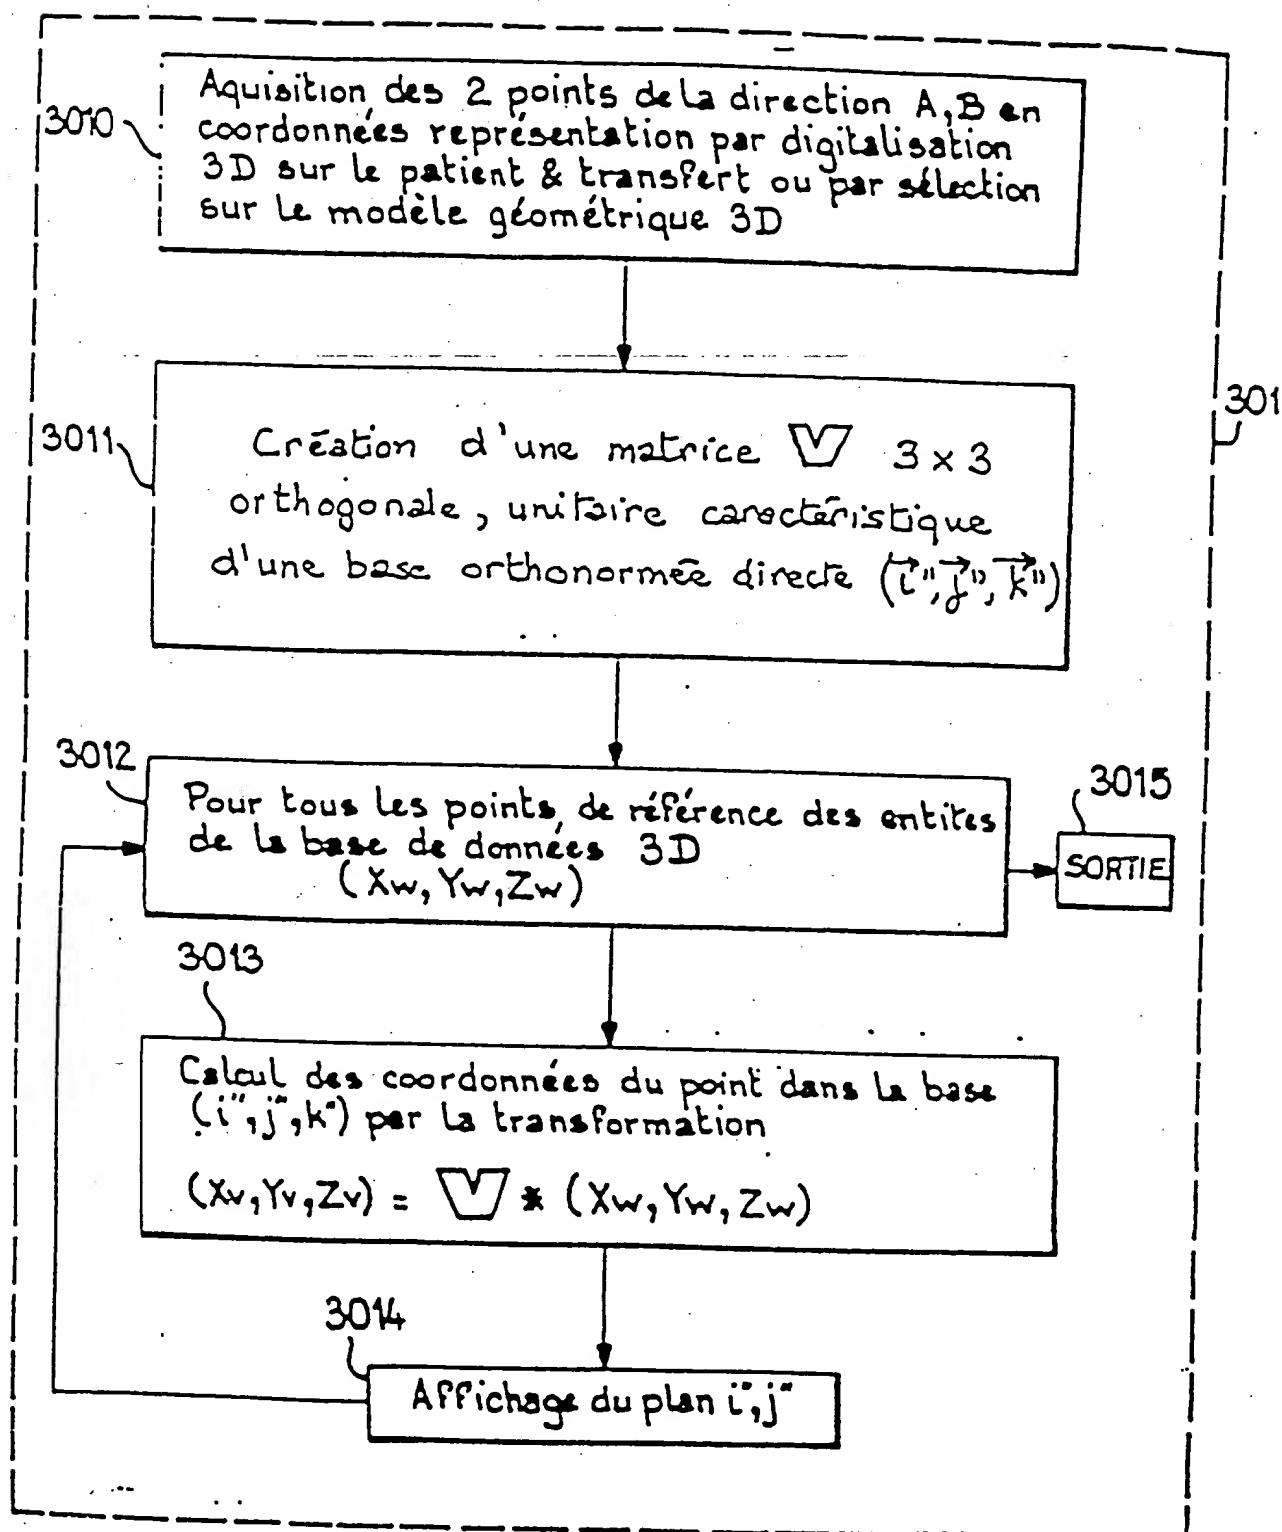 Aquisition des 2 points de la direction A,B en
coordonnées représentation par digitalisation
3D sur le patient & transfert ou par sélection
sur le modèle géométrique 3D
3010
301
3011
Création d'une matrice V 3 x 3
orthogonale, unitaire caractéristique
d'une base orthonormée directe (i", j", k")
3012
Pour tous les points de référence des entites
de la base de données 3D
(Xw, Yw, Zw)
3015
SORTIE
3013
Calcul des coordonnées du point dans la base
(i", j", k") par la transformation
(Xv, Yv, Zv) = V * (Xw, Yw, Zw)
3014
Affichage du plan i", j"